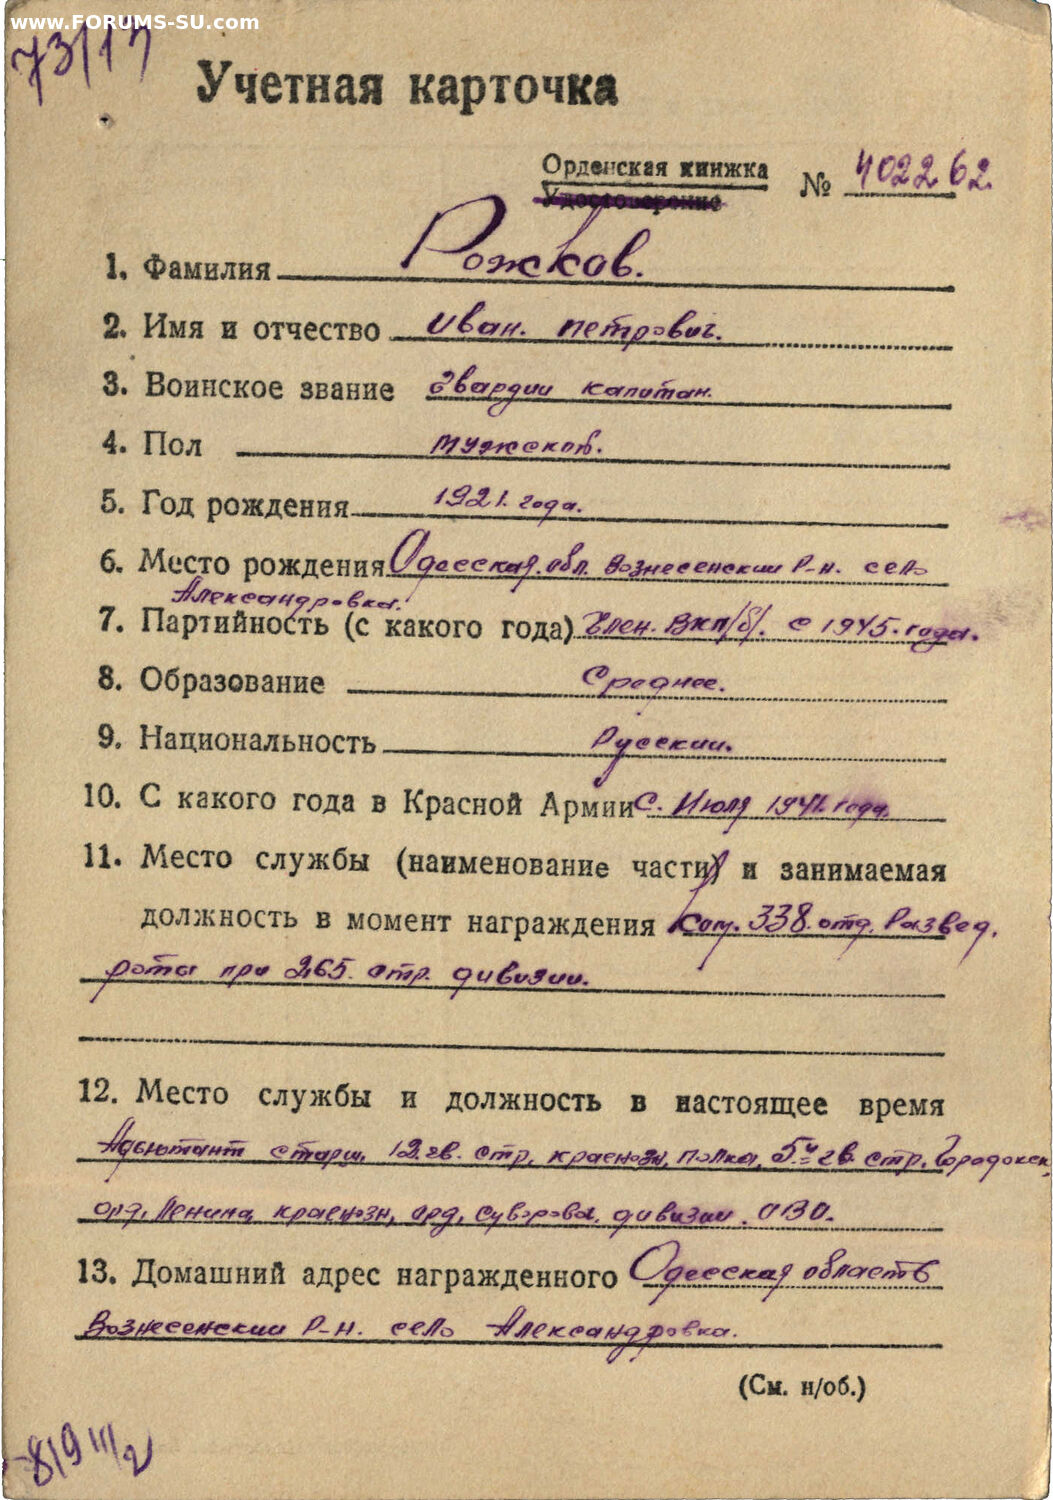 www.FORUMS-SU.com
73/17
Учетная карточка
Орденская книжка
Удостоверение
№ 402262.
1. Фамилия Рожков.
2. Имя и отчество Иван. Петрович.
3. Воинское звание Гвардии капитан.
4. Пол мужской.
5. Год рождения 1921. года.
6. Место рождения Одесская. обл. Вознесенский р-н. село
Александровка.
7. Партийность (с какого года) Член. ВКП/б/. с 1945. года.
8. Образование Среднее.
9. Национальность Русский.
10. С какого года в Красной Армии С. Июля 1941. года.
11. Место службы (наименование части) и занимаемая
должность в момент награждения Ком. 338. отд. Развед.
роты при 265. стр. дивизии.
12. Место службы и должность в настоящее время
Адъютант старш. 12. гв. стр. краснозн. полка, 5й гв. стр. Городокск.
орд. Ленина, краснозн, орд. Суворова. дивизии. ОВО.
13. Домашний адрес награжденного Одесская область
Вознесенский р-н. село Александровка.
(См. н/об.)